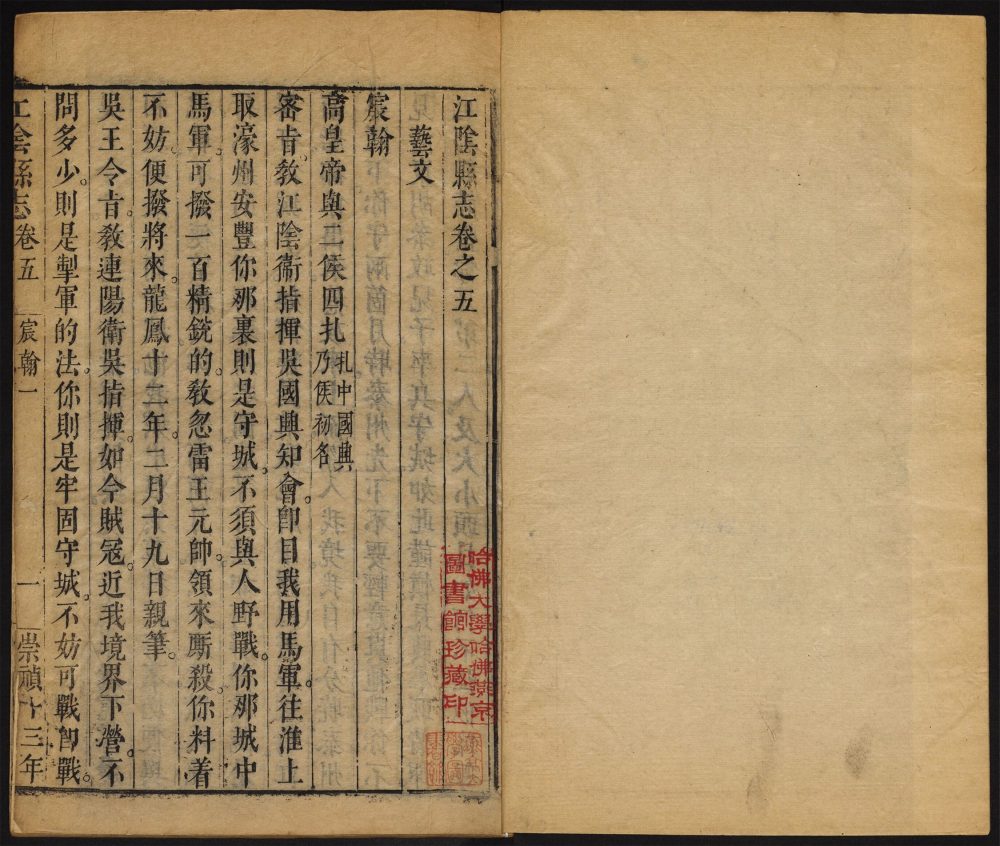 江隂縣志卷之五
藝文
宸翰
高皇帝與吳侯四扎 扎中國興
乃侯初名
密㫖教江陰衞指揮吳國興知會卽目我用馬軍往淮上
取濠州安豐你那裏則是守城不須與人野戰你那城中
馬軍可撥一百精銳的教忽雷王元帥領來厮殺你料着
不妨便撥將來龍鳳十二年二月十九日親筆
吳王令㫖教連陽衛吳指揮如今賊冦近我境界下營不
問多少則是掣軍的法你則是牢固守城不妨可戰卽戰
江隂縣志 卷五 宸翰一 一 崇禎十三年
哈佛大學哈佛燕京
圖書館珍藏印